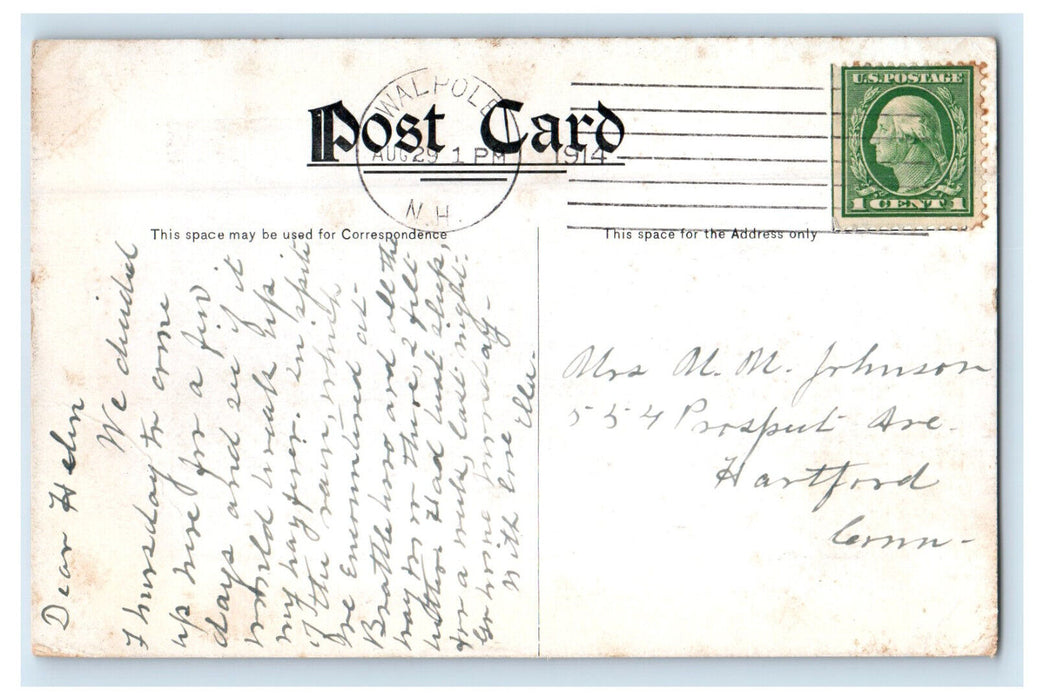 U.S. POSTAGE
1 CENT 1
WALPOLE
AUG 29 1 PM 1914
N.H.
Post Card
This space may be used for Correspondence
This space for the Address only
Dear Helen
We decided
Thursday to come
up here for a few
days and see if it
would break up
my hay fever. In spite
of the rain, which
we encountered at
Brattleboro and all the
way in there, I felt
better. Had best sleep,
for a week, last night.
Go home Monday -
With love
Ella.
Mrs M. M. Johnson
554 Prospect Ave.
Hartford
Conn -